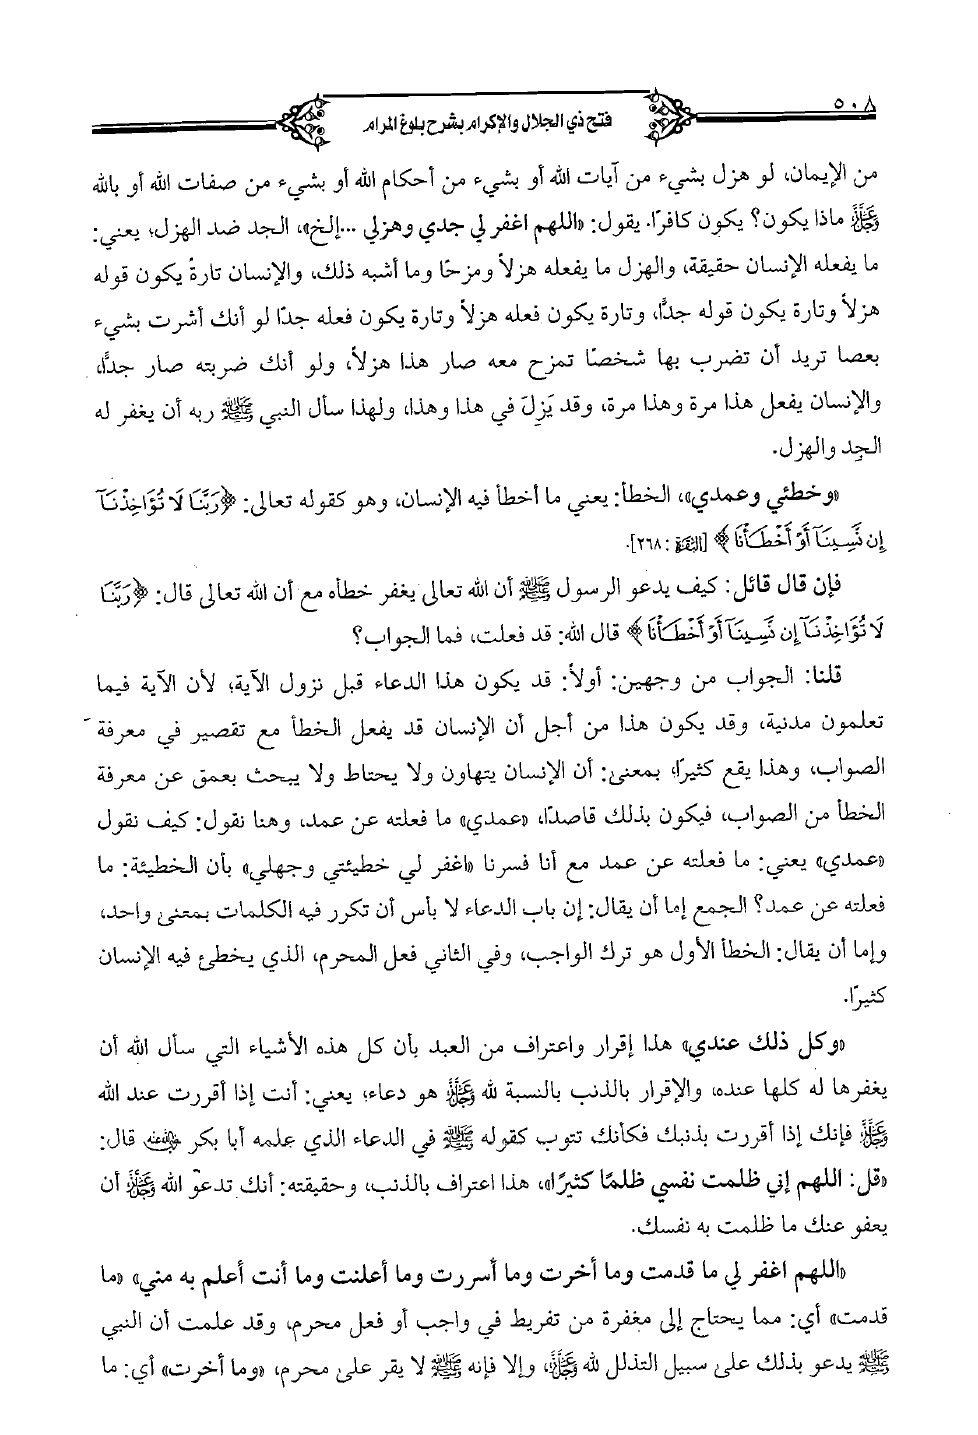 ٥٠٨
فتح ذي الجلال والإكرام بشرح بلوغ المرام
من الإيمان، لو هزل بشيء من آيات الله أو بشيء من أحكام الله أو بشيء من صفات الله أو بالله
ﷻ ماذا يكون؟ يكون كافرًا. يقول: «اللهم اغفر لي جدي وهزلي ...إلخ»، الجد ضد الهزل؛ يعني:
ما يفعله الإنسان حقيقة، والهزل ما يفعله هزلاً ومزحًا وما أشبه ذلك، والإنسان تارةً يكون قوله
هزلاً وتارة يكون قوله جدًّا، وتارة يكون فعله هزلاً وتارة يكون فعله جدًا لو أنك أشرت بشيء
بعصا تريد أن تضرب بها شخصًا تمزح معه صار هذا هزلاً، ولو أنك ضربته صار جدًّا،
والإنسان يفعل هذا مرة وهذا مرة، وقد يَزِلّ في هذا وهذا، ولهذا سأل النبي ﷺ ربه أن يغفر له
الجِد والهزل.
«وخطئي وعمدي»، الخطأ: يعني ما أخطأ فيه الإنسان، وهو كقوله تعالى: ﴿رَبَّنَا لَا تُؤَاخِذْنَآ
إِن نَّسِينَآ أَوْ أَخْطَأْنَا﴾ [البقرة: ٢٦٨].
فإن قال قائل: كيف يدعو الرسول ﷺ أن الله تعالى يغفر خطأه مع أن الله تعالى قال: ﴿رَبَّنَا
لَا تُؤَاخِذْنَآ إِن نَّسِينَآ أَوْ أَخْطَأْنَا﴾ قال الله: قد فعلت، فما الجواب؟
قلنا: الجواب من وجهين: أولاً: قد يكون هذا الدعاء قبل نزول الآية؛ لأن الآية فيما
تعلمون مدنية، وقد يكون هذا من أجل أن الإنسان قد يفعل الخطأ مع تقصير في معرفة
الصواب، وهذا يقع كثيرًا؛ بمعنى: أن الإنسان يتهاون ولا يحتاط ولا يبحث بعمق عن معرفة
الخطأ من الصواب، فيكون بذلك قاصدًا، «عمدي» ما فعلته عن عمد، وهنا نقول: كيف نقول
«عمدي» يعني: ما فعلته عن عمد مع أنا فسرنا «اغفر لي خطيئتي وجهلي» بأن الخطيئة: ما
فعلته عن عمد؟ الجمع إما أن يقال: إن باب الدعاء لا بأس أن تكرر فيه الكلمات بمعنى واحد،
وإما أن يقال: الخطأ الأول هو ترك الواجب، وفي الثاني فعل المحرم، الذي يخطئ فيه الإنسان
كثيرًا.
«وكل ذلك عندي» هذا إقرار واعتراف من العبد بأن كل هذه الأشياء التي سأل الله أن
يغفرها له كلها عنده، والإقرار بالذنب بالنسبة لله ﷻ هو دعاء؛ يعني: أنت إذا أقررت عند الله
ﷻ فإنك إذا أقررت بذنبك فكأنك تتوب كقوله ﷺ في الدعاء الذي علمه أبا بكر رضي الله عنه قال:
«قل: اللهم إني ظلمت نفسي ظلمًا كثيرًا»، هذا اعتراف بالذنب، وحقيقته: أنك تدعو الله ﷻ أن
يعفو عنك ما ظلمت به نفسك.
«اللهم اغفر لي ما قدمت وما أخرت وما أسررت وما أعلنت وما أنت أعلم به مني» «ما
قدمت» أي: مما يحتاج إلى مغفرة من تفريط في واجب أو فعل محرم، وقد علمت أن النبي
ﷺ يدعو بذلك على سبيل التذلل لله ﷻ، وإلا فإنه ﷺ لا يقر على محرم، «وما أخرت» أي: ما